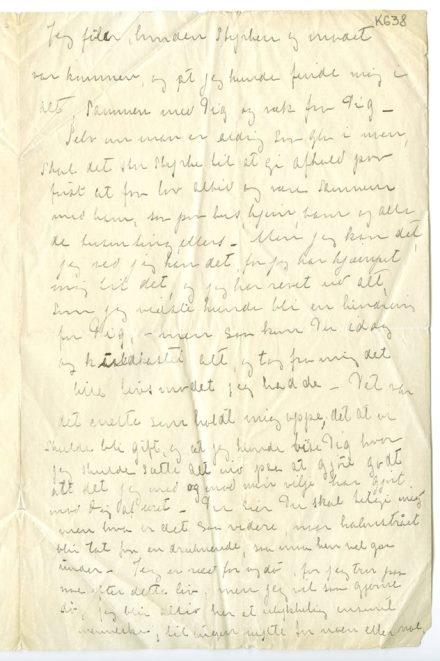 K638
Jeg føler, hvordan Styrken og modet
var kommen, og at jeg kunde finde mig i
alt, sammen med Dig og væk fra Dig –
Selv om man er aldrig saa gla i men,
skal det stor Styrke til at gi afkald paa
først at faa lov altid og være sammen
med ham, saa paa hus hjem, barn og alle
de ellers – Men jeg kan det,
jeg ved jeg kan det, for jeg har kjæmpet
mig til det, og jeg har reist ud alt,
som jeg vidste kunde bli en hindring
for Dig, – men saa kom Du idag
og alt, og tog fra mig det
lille livsmodet jeg hadde – Det var
det eneste som holdt mig oppe, det at vi
skulde bli gift, og at jeg kunde vise Dig hvor
jeg skulde sætte alt ind paa at gjøre godt
alt det jeg med og mod min vilje har gjort
mod Dig – Du sier Du skal hjelpe mig
men hva er det saa videre naar halmstraaet
blir tat fra en druknende, saa maa han vel gaa
under – Jeg er ræd for og dø, for jeg tror paa
noe efter dette liv, men jeg vil saa gjerne
dø. Jeg blir altid her et ulykkelig ensomt
menneske, til ingen nytte for noen eller noe